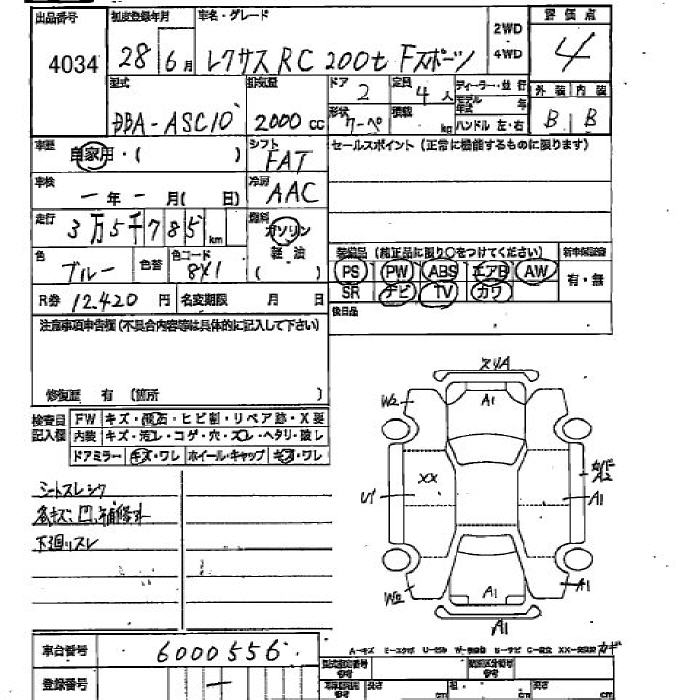 出品番号 初度登録年月 車名・グレード 2WD 4WD 評価点
4034 28 6月 レクサス RC 200t Fスポーツ 4
型式 排気量 ドア 2 定員 4人 ディーラー・並行 外装 内装
DBA-ASC10 2000cc 形状 クーペ 積載 kg モデル年式 年 ハンドル 左・右 B B
車歴 自家用・( ) シフト FAT セールスポイント(正常に機能するものに限ります)
車検 ー年ー月( 日) 冷房 AAC
走行 3万5千785km 燃料 ガソリン 軽油 ( )
色 ブルー 色替 色コード 8X1
装備品(純正品に限り○をつけてください) 新車保証書
PS PW ABS エアB AW 有・無
SR ナビ TV カワ
R券 12,420円 名変期限 月 日 後日品
注意事項申告欄(不具合内容等は具体的に記入して下さい)
修復歴 有 (箇所 )
検査員記入欄 FW キズ・飛石・ヒビ割・リペア跡・X要
内装 キズ・汚レ・コゲ・穴・スレ・ヘタリ・破レ
ドアミラー キズ・ワレ ホイール・キャップ キズ・ワレ
シートスレシワ
各キズ、凹、補修跡
下廻リスレ
スリA
A1
W2
XX
U1
A2
A1
W2
A1
A1
A1
車台番号 6000556
登録番号 ー
A-キズ E-エクボ U-ヘコミ
cm cm cm